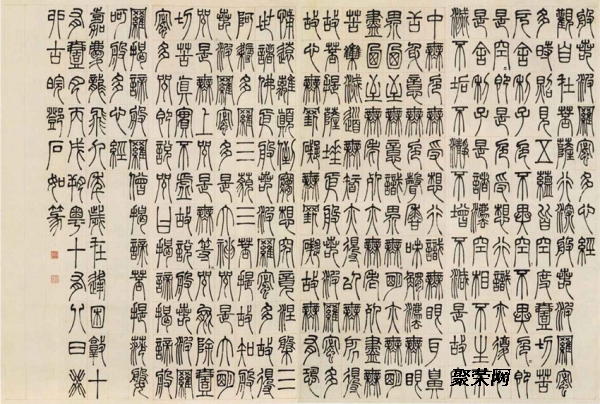 般若波羅蜜多心經
觀自在菩薩行深般若波羅蜜
多時照見五蘊皆空度一切苦
厄舍利子色不異空空不異色色即
是空空即是色受想行識亦復如
是舍利子是諸法空相不生不
滅不垢不淨不增不減是故空
中無色無受想行識無眼耳鼻
舌身意無色聲香味觸法無眼
界乃至無意識界無無明亦無無明
盡乃至無老死亦無老死盡無
苦集滅道無智亦無得以無所得
故菩提薩埵依般若波羅蜜多
故心無罣礙無罣礙故無有恐
怖遠離顛倒夢想究竟涅槃三
世諸佛依般若波羅蜜多故得
阿耨多羅三藐三菩提故知般
若波羅蜜多是大神咒是大明
咒是無上咒是無等等咒能除壹
切苦真實不虛故說般若波羅
蜜多咒即說咒曰揭諦揭諦般
羅揭諦般羅僧揭諦菩提薩婆
呵般若多心經
嘉慶龍飛九年歲在逢困敦十
有壹月丙戌朔粵十有八日癸
卯古浣鄧石如篆
聚荣网